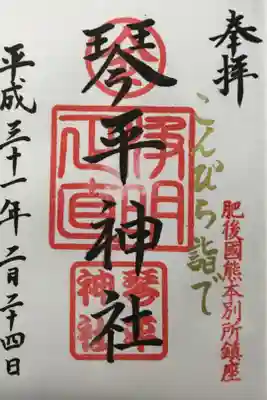 奉拝
こんぴら詣で
肥後國熊本別所鎮座
琴平神社
琴平神社
平成三十一年二月二十四日